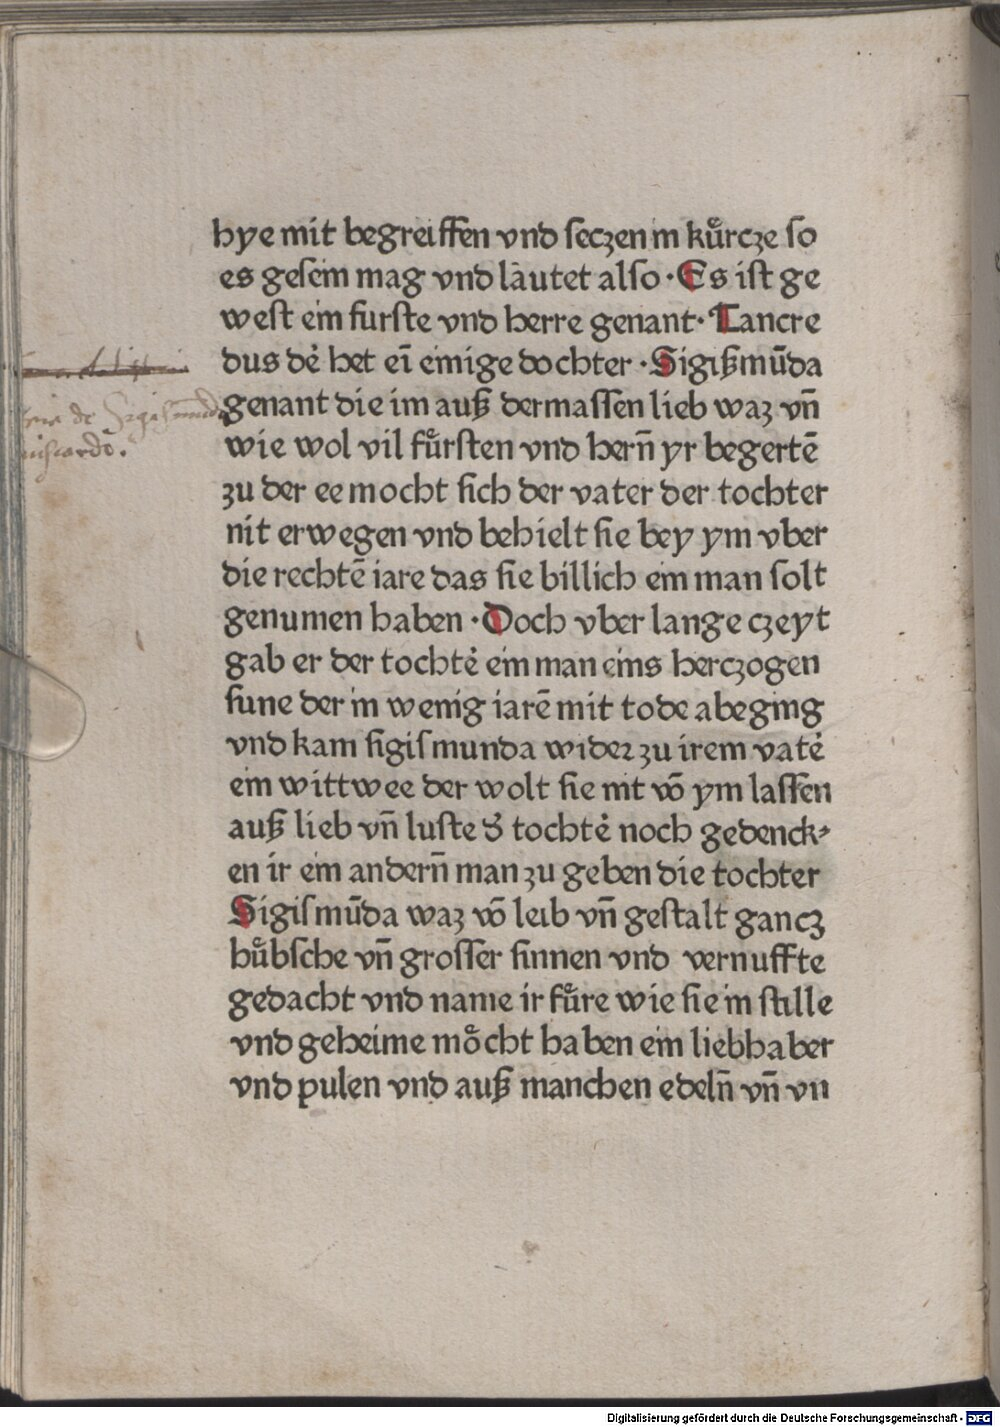 hye mit begreiffen vnd seczen in kůrcze so
es gesein mag vnd làutet also · Es ist ge
west ein furste vnd herre genant · Tancre
dus dė het eī einige dochter · Sigißmūda
genant die im auß dermassen lieb waz vn̄
wie wol vil fůrsten vnd hern̄ yr begertē
zu der ee mocht sich der vater der tochter
nit erwegen vnd behielt sie bey ym vber
die rechtē iare das sie billich ein man solt
genumen haben · Doch vber lange czeyt
gab er der tochtė ein man eins herczogen
sune der in wenig iarē mit tode abeging
vnd kam sigismunda wider zu irem vatė
ein wittwee der wolt sie nit vō ym lassen
auß lieb vn̄ luste d' tochtė noch gedenck⸗
en ir ein andern̄ man zu geben die tochter
Sigismūda waz vō leib vn̄ gestalt gancz
hůbsche vn̄ grosser sinnen vnd vernuffte
gedacht vnd name ir fůre wie sie in stille
vnd geheime mo̊cht haben ein liebhaber
vnd pulen vnd auß manchen edeln̄ vn̄ vn
de Sigismunda
Digitalisierung gefördert durch die Deutsche Forschungsgemeinschaft - DFG